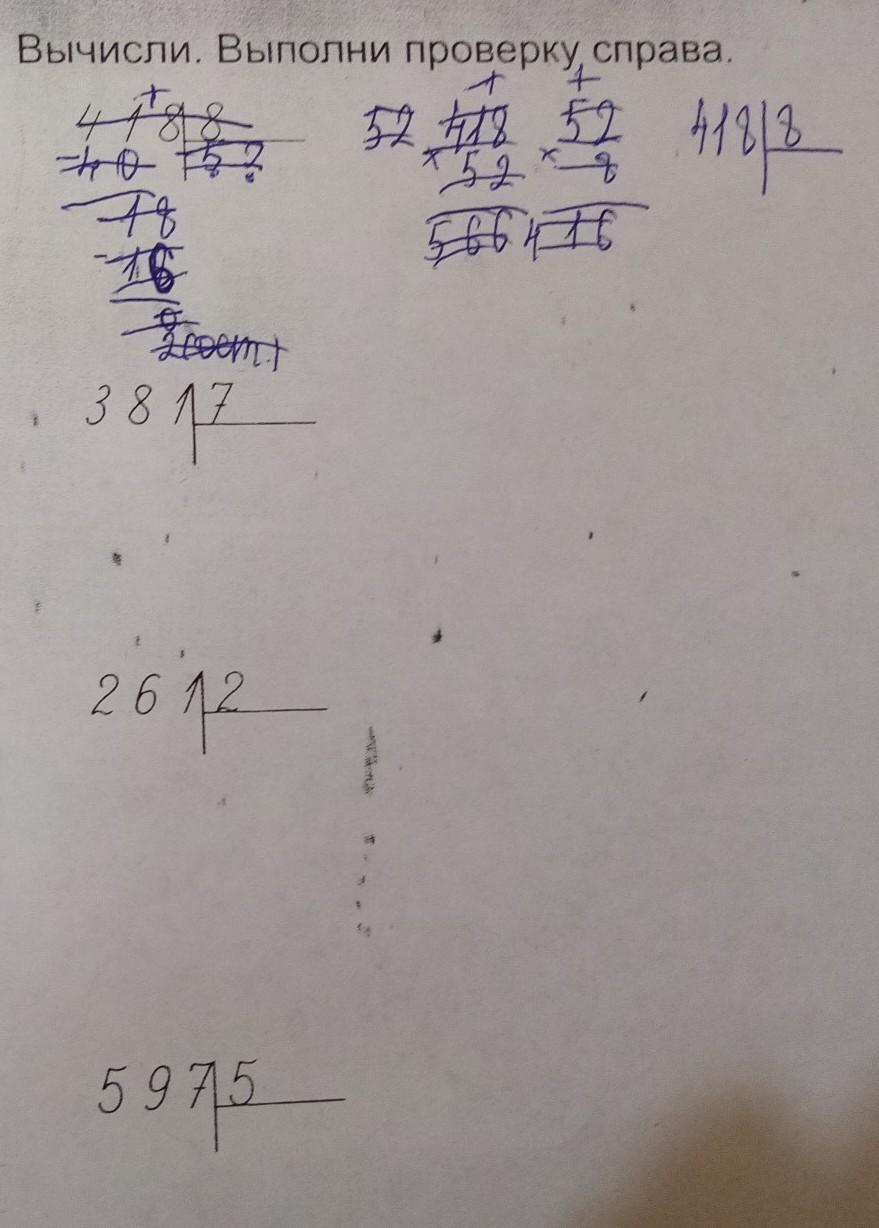 Вычисли. Выполни проверку справа.
+ + +
418 8 52 418 52 418 8
-40 52 × 52 × 8
18 566 416
-16
2(ост.)
381 7
261 2
597 5